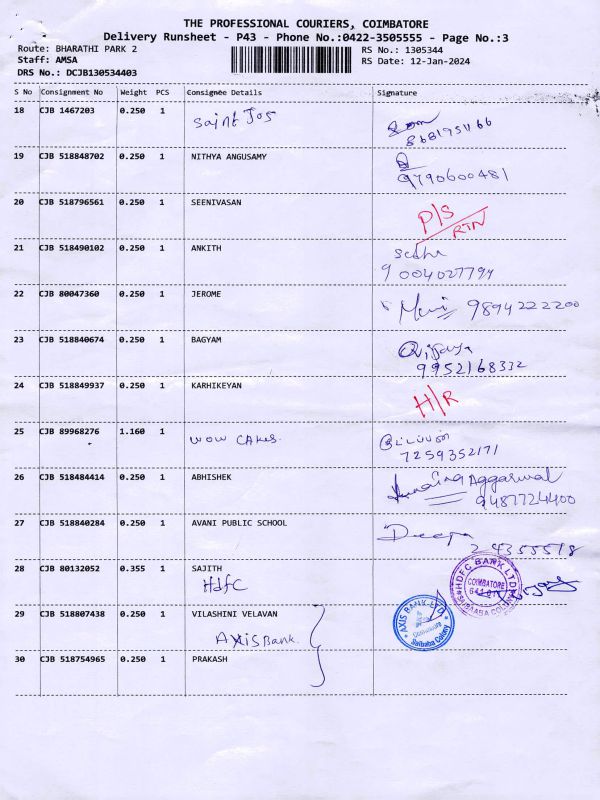 THE PROFESSIONAL COURIERS, COIMBATORE
Delivery Runsheet - P43 - Phone No.:0422-3505555 - Page No.:3
Route: BHARATHI PARK 2
RS No.: 1305344
Staff: AMSA
RS Date: 12-Jan-2024
DRS No.: DCJB130534403
S No Consignment No Weight PCS Consignee Details Signature
18 CJB 1467203 0.250 1 Saint Jos
19 CJB 518848702 0.250 1 NITHYA ANGUSAMY
9790600481
20 CJB 518796561 0.250 1 SEENIVASAN P/S
RTN
21 CJB 518490102 0.250 1 ANKITH
9004027794
22 CJB 80047360 0.250 1 JEROME 9894222200
23 CJB 518840674 0.250 1 BAGYAM Vijaya
9952168332
24 CJB 518849937 0.250 1 KARHIKEYAN H/R
25 CJB 89968276 1.160 1 WOW CAKES.
7259352171
26 CJB 518484414 0.250 1 ABHISHEK Aggarwal
9487724400
27 CJB 518840284 0.250 1 AVANI PUBLIC SCHOOL Deepa
24355518
28 CJB 80132052 0.355 1 SAJITH
Hdfc
HDFC BANK LTD
COIMBATORE
29 CJB 518807438 0.250 1 VILASHINI VELAVAN
Axis Bank.
AXIS BANK LTD
Coimbatore
Saibaba Colony
30 CJB 518754965 0.250 1 PRAKASH